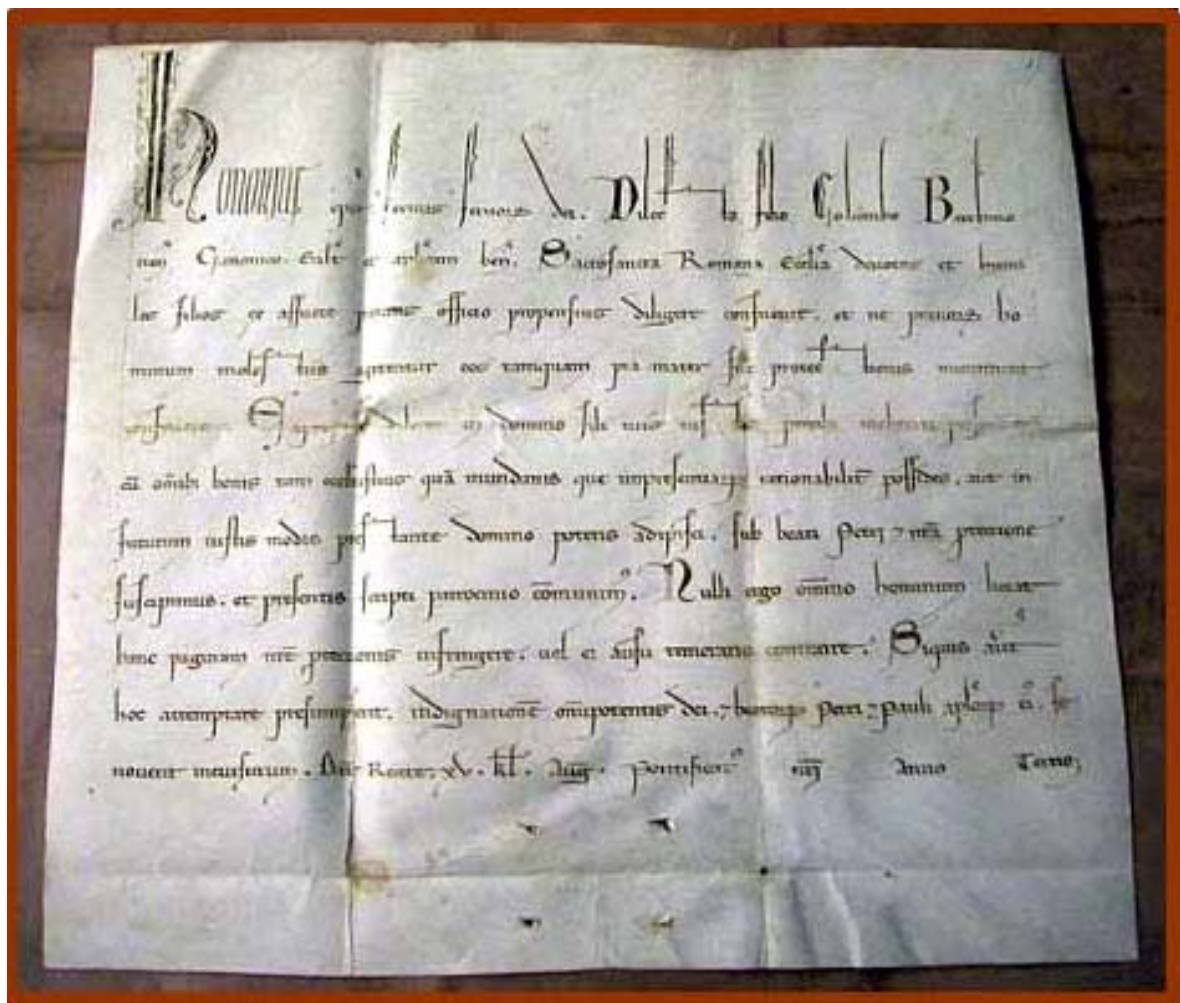 Honorius eps seruus seruor dei. Dilecto filio
Canonico salt et aplicam ben. Sacrosancta Romana Ecclia deuotos et humi
les filios ex assuete pietatis officio propensius diligere consueuit. et ne prauorum ho
minum molestiis agitentur eos tanquam pia mater sue protectionis munimine
in domino fili
cu omibus bonis tam ecclesiasticis qua mundanis que impresentiarum rationabilit possides. aut in
futurum iustis modis prestante domino poteris adipisci. sub beati Petri ⁊ nra protectione
suscipimus. et presentis scripti patrocinio comunim. Nulli ergo omnino hominum liceat
hanc paginam nre protectionis infringere. uel ei ausu temerario contraire. Siquis aut
hoc attemptare presumpserit. indignatione omnipotentis dei. ⁊ beatorum Petri ⁊ Pauli aplorum ei. se
nouerit incursurum. Dat Reate. xv. kl. Aug. Pontificat nri Anno Tertio